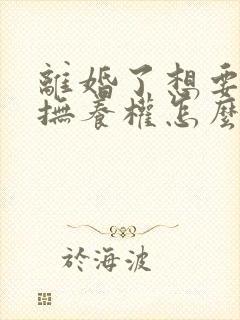 離婚了想要
撫養權怎麼
於海波